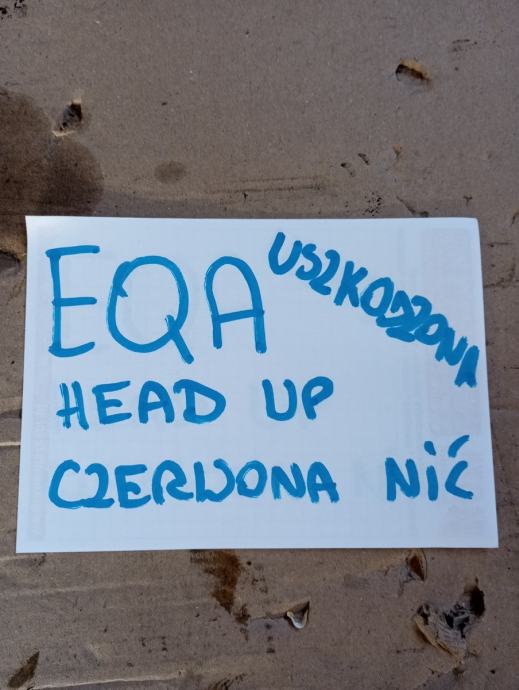 EQA
USZKODZONA
HEAD UP
CZERWONA NIĆ